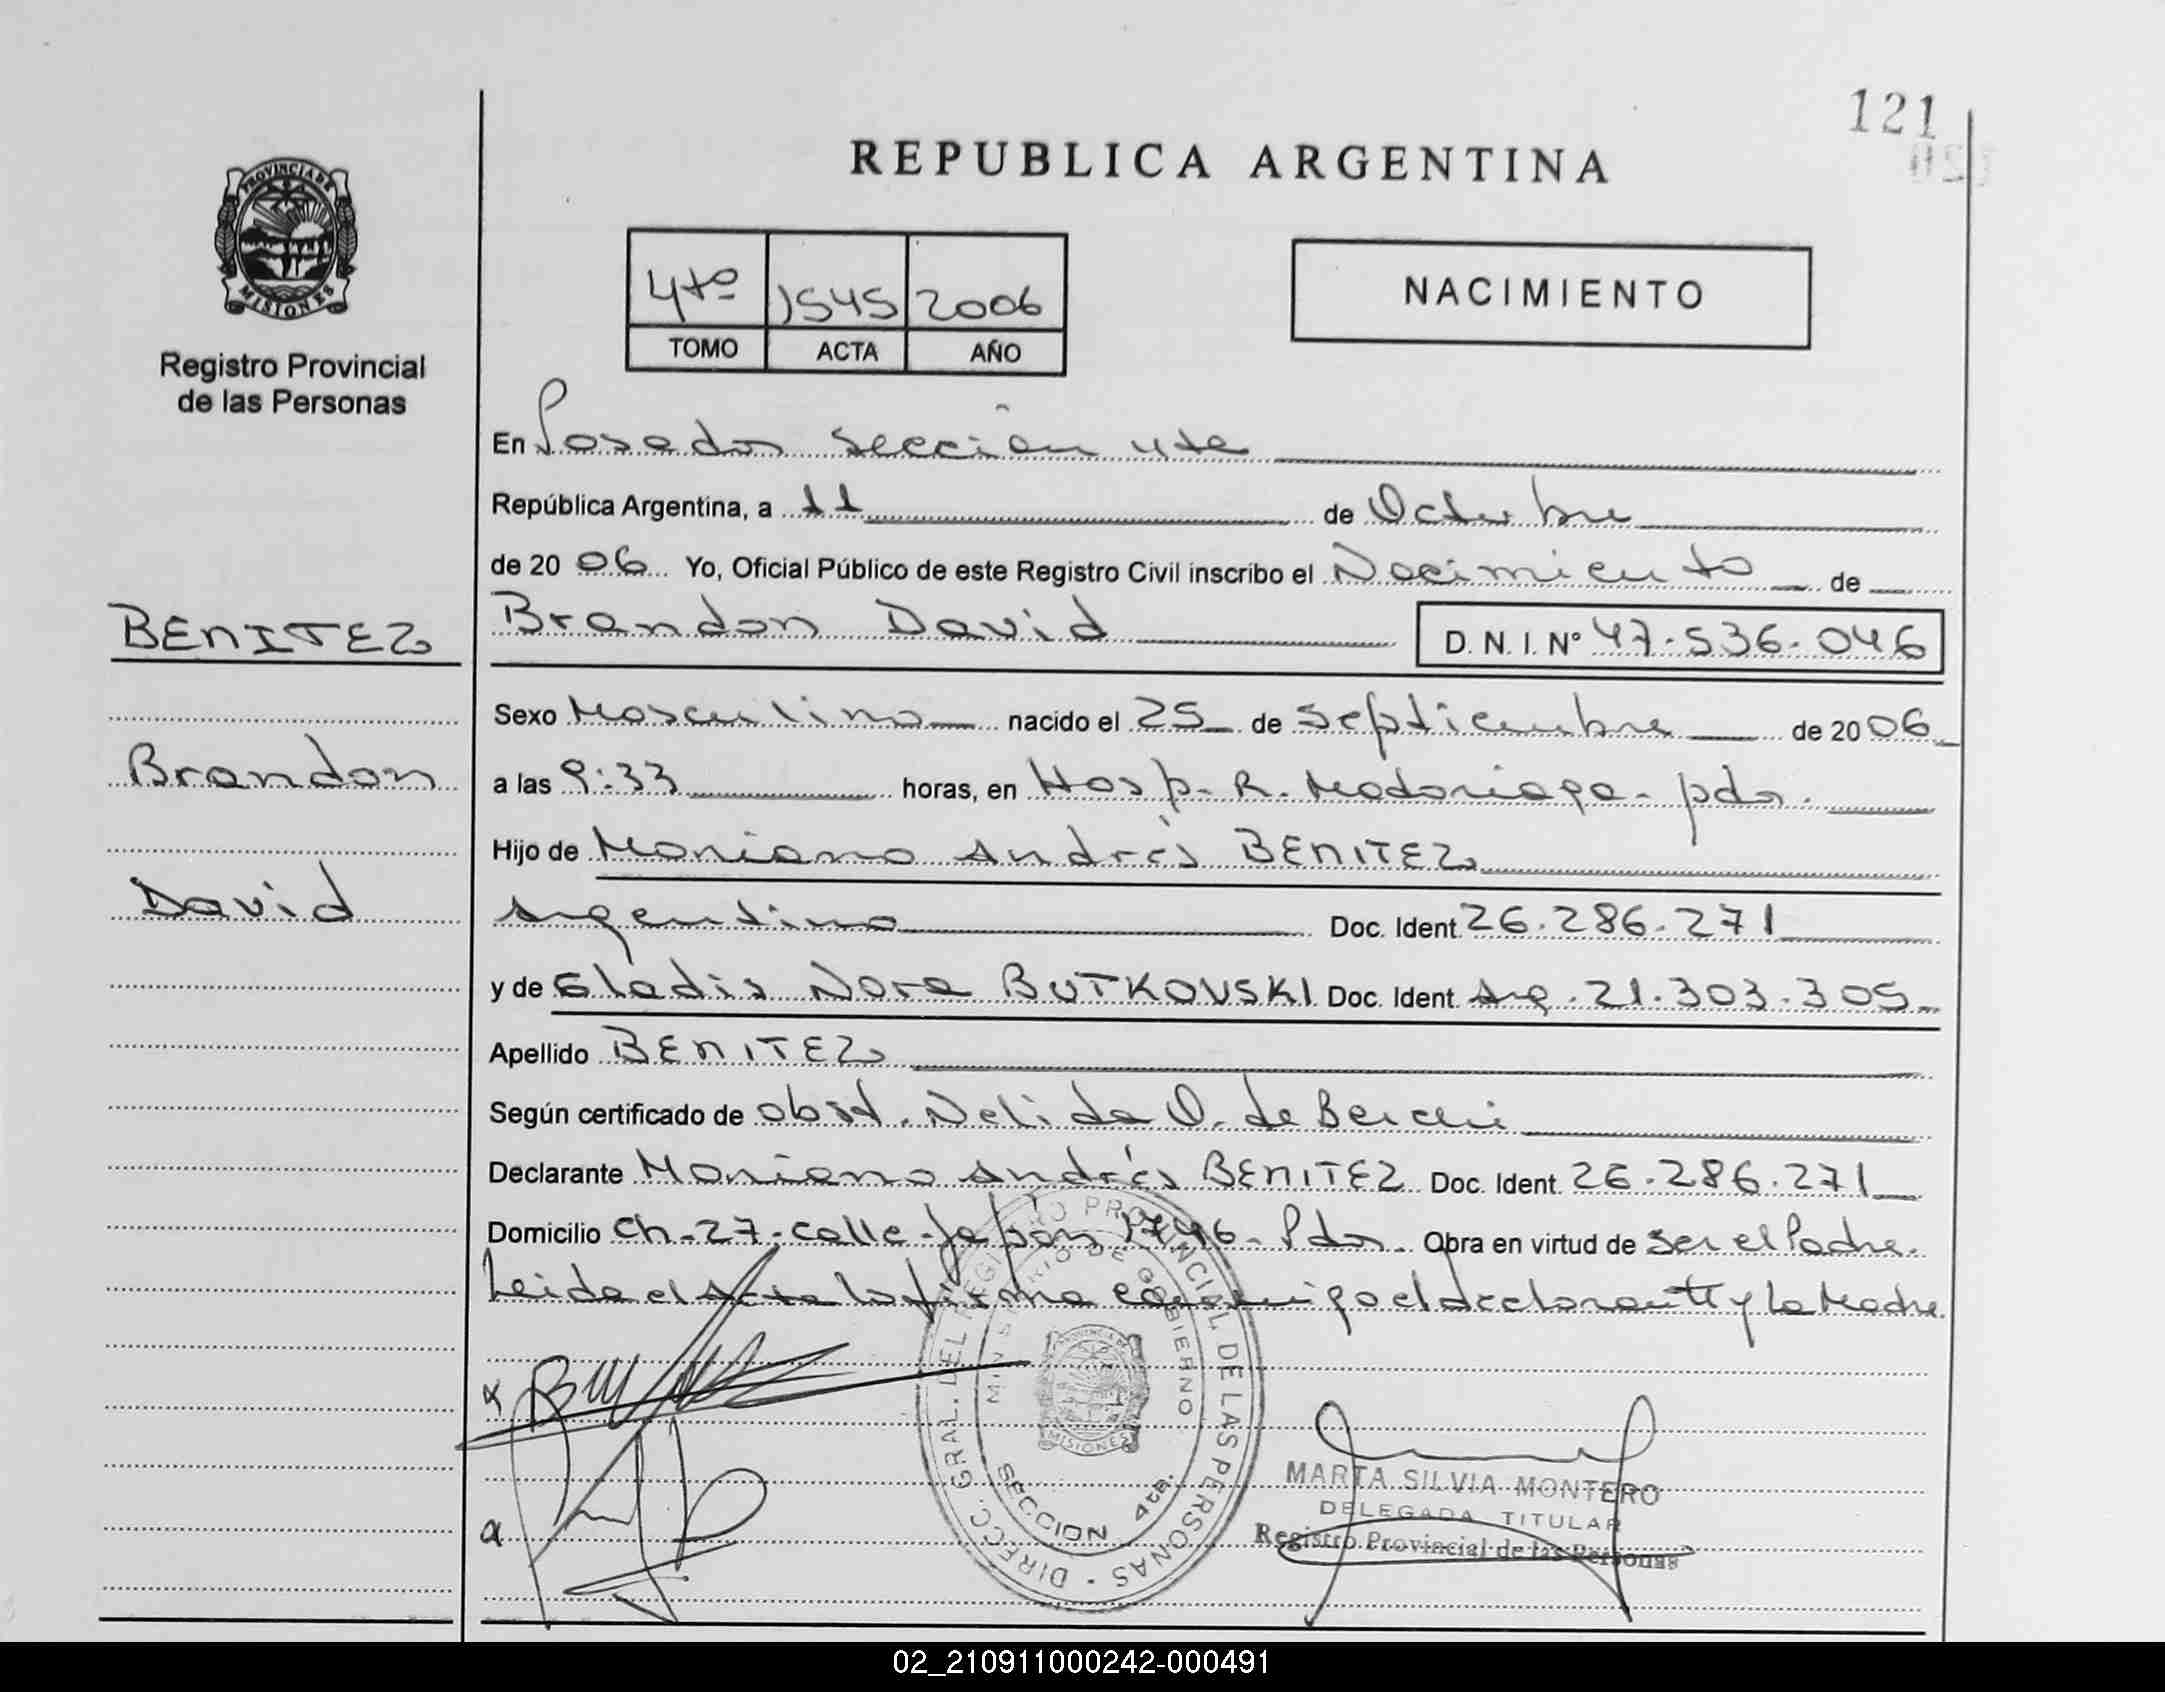 121
REPUBLICA ARGENTINA
PROVINCIA DE
MISIONES
Registro Provincial
de las Personas
4to 1545 2006
TOMO ACTA AÑO
NACIMIENTO
En Posadas sección 4ta
República Argentina, a 11 de Octubre
de 2006 Yo, Oficial Público de este Registro Civil inscribo el Nacimiento de
BENITEZ
Brandon David D. N. I. Nº 47.536.046
Sexo Masculino nacido el 25 de Septiembre de 2006
Brandon
a las 9:33 horas, en Hosp. R. Madariaga - pdas.
Hijo de Mariano Andrés BENITEZ
David
Argentino Doc. Ident. 26.286.271
y de Gladis Nora BUTKOVSKI Doc. Ident. Arg. 21.303.305
Apellido BENITEZ
Según certificado de obst. Nelida O. de
Declarante Mariano Andrés BENITEZ Doc. Ident. 26.286.271
Domicilio Ch. 27. calle Japón 1746 - Pdas. Obra en virtud de ser el Padre.
Leida el Acta la firma conmigo el declarante y La Madre.
DIRECC. GRAL. DEL REGISTRO PROVINCIAL DE LAS PERSONAS
MINISTERIO DE GOBIERNO
PROVINCIA DE
MISIONES
SECCION 4ta.
MARTA SILVIA MONTERO
DELEGADA TITULAR
Registro Provincial de las Personas
02_210911000242-000491